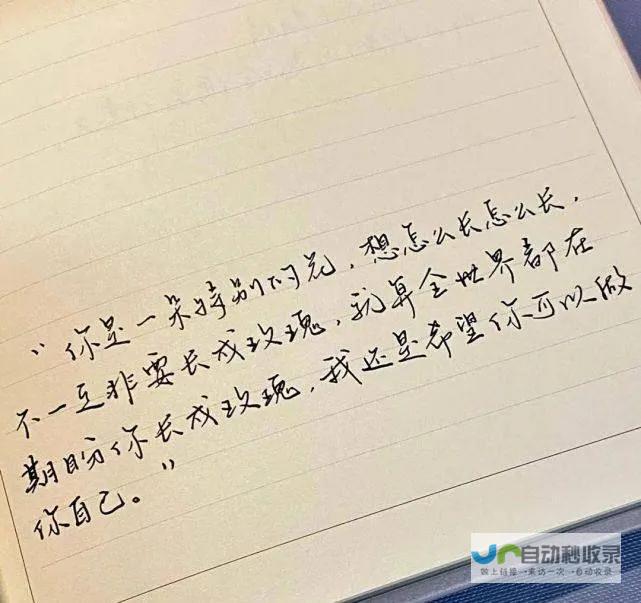 “你是一朵特别的花，想怎么长怎么长，
不一定非要长成玫瑰，就算全世界都在
期盼你长成玫瑰，我还是希望你可以做
你自己。”
自动秒收录
做上链接→来访一次→自动收录